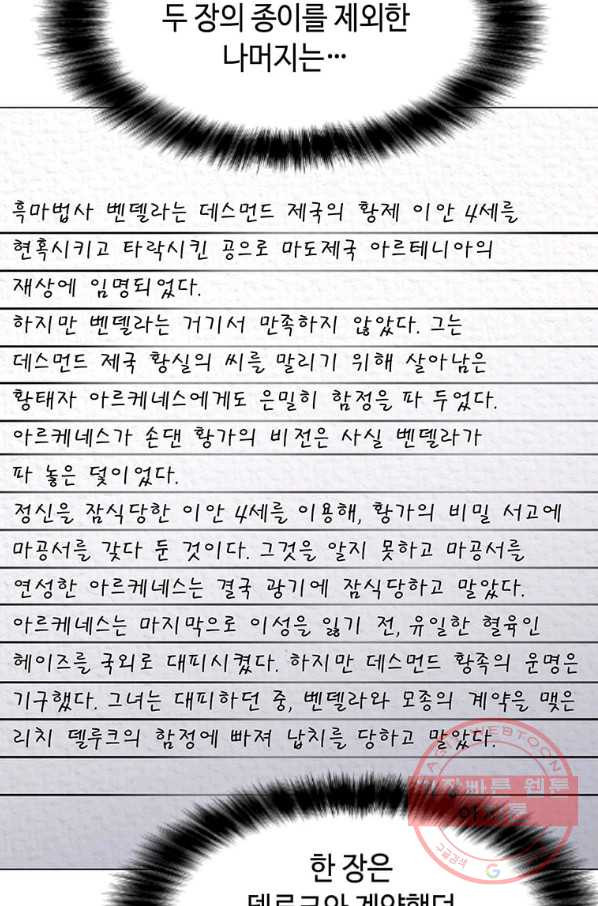 두 장의 종이를 제외한
나머지는…
흑마법사 벤델라는 데스먼드 제국의 황제 이안 4세를
현혹시키고 타락시킨 공으로 마도제국 아르테니아의
재상에 임명되었다.
하지만 벤델라는 거기서 만족하지 않았다. 그는
데스먼드 제국 황실의 씨를 말리기 위해 살아남은
황태자 아르케네스에게도 은밀히 함정을 파 두었다.
아르케네스가 손댄 황가의 비전은 사실 벤델라가
파 놓은 덫이었다.
정신을 잠식당한 이안 4세를 이용해, 황가의 비밀 서고에
마공서를 갖다 둔 것이다. 그것을 알지 못하고 마공서를
연성한 아르케네스는 결국 광기에 잠식당하고 말았다.
아르케네스는 마지막으로 이성을 잃기 전, 유일한 혈육인
헤이즈를 국외로 대피시켰다. 하지만 데스먼드 황족의 운명은
기구했다. 그녀는 대피하던 중, 벤델라와 모종의 계약을 맺은
리치 델루크의 함정에 빠져 납치를 당하고 말았다.
WEBTOON
빠른 웹툰
구글검색
G
한 장은
델루크와 계약했던